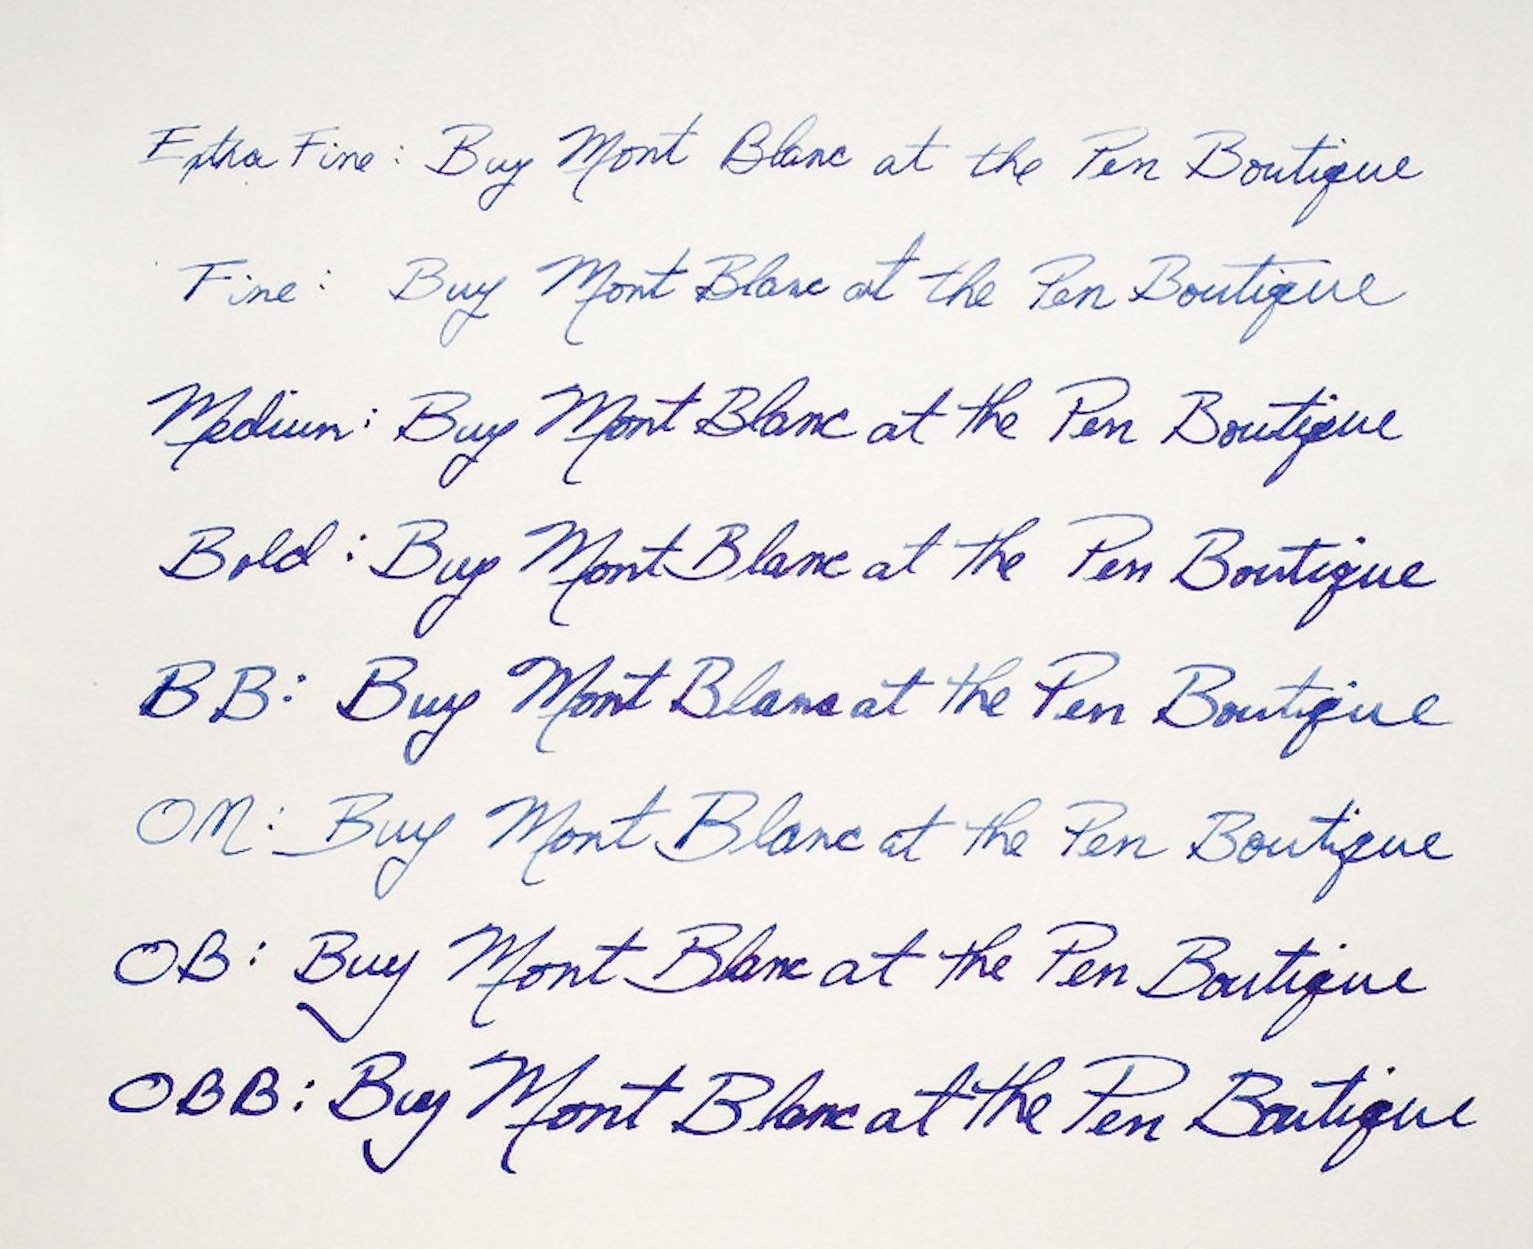 Extra Fine: Buy Mont Blanc at the Pen Boutique
Fine: Buy Mont Blanc at the Pen Boutique
Medium: Buy Mont Blanc at the Pen Boutique
Bold: Buy Mont Blanc at the Pen Boutique
BB: Buy Mont Blanc at the Pen Boutique
OM: Buy Mont Blanc at the Pen Boutique
OB: Buy Mont Blanc at the Pen Boutique
OBB: Buy Mont Blanc at the Pen Boutique